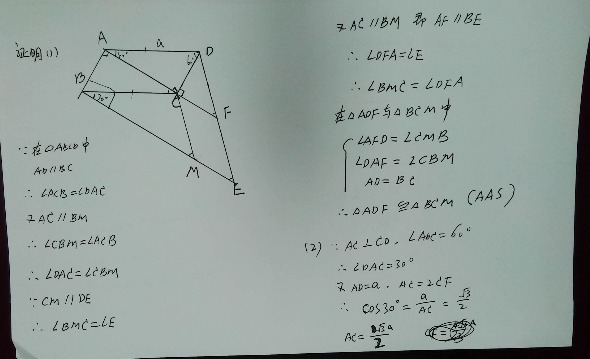 证明(1)
A
a
D
30°
60°
B
C
30°
F
M
E
∵ 在▱ABCD中
AD∥BC
∴ ∠ACB=∠DAC
又AC∥BM
∴ ∠CBM=∠ACB
∴ ∠DAC=∠CBM
∵ CM∥DE
∴ ∠BMC=∠E
又AC∥BM 即 AF∥BE
∴ ∠DFA=∠E
∴ ∠BMC=∠DFA
在△ADF与△BCM中
∠AFD=∠CMB
∠DAF=∠CBM
AD=BC
∴ △ADF≌△BCM (AAS)
(2) ∵ AC⊥CD, ∠ADC=60°
∴ ∠DAC=30°
又AD=a, AC=2CF
∴ cos30°=a/AC=√3/2